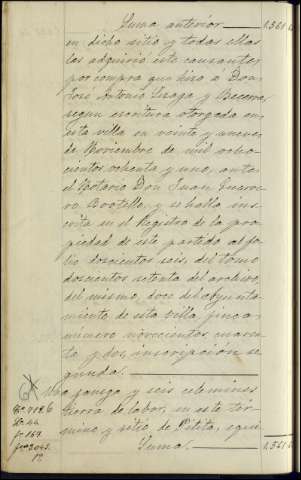 Suma anterior 1,361
en dicho sitio y todas ellas
las adquirió este causante,
por compra que hizo a Don
José Antonio y Becerra,
segun escritura otorgada en
esta villa en veinte y nueve
de Noviembre de mil ocho
cientos ochenta y uno, ante
el Notario Don Juan Guerre
ro Bootello, y se halla ins
crita en el Registro de la pro
piedad de este partido al fo
lio doscientos seis, del tomo
doscientos setenta del archivo,
del mismo, doce del Ayunta
miento de esta villa, finca
número novecientos cuaren
ta y dos, inscripción se
gunda.
Una fanega y seis celemines
tierra de labor, en este tér
mino y sitio de Pitita, equi
Suma. 1,361